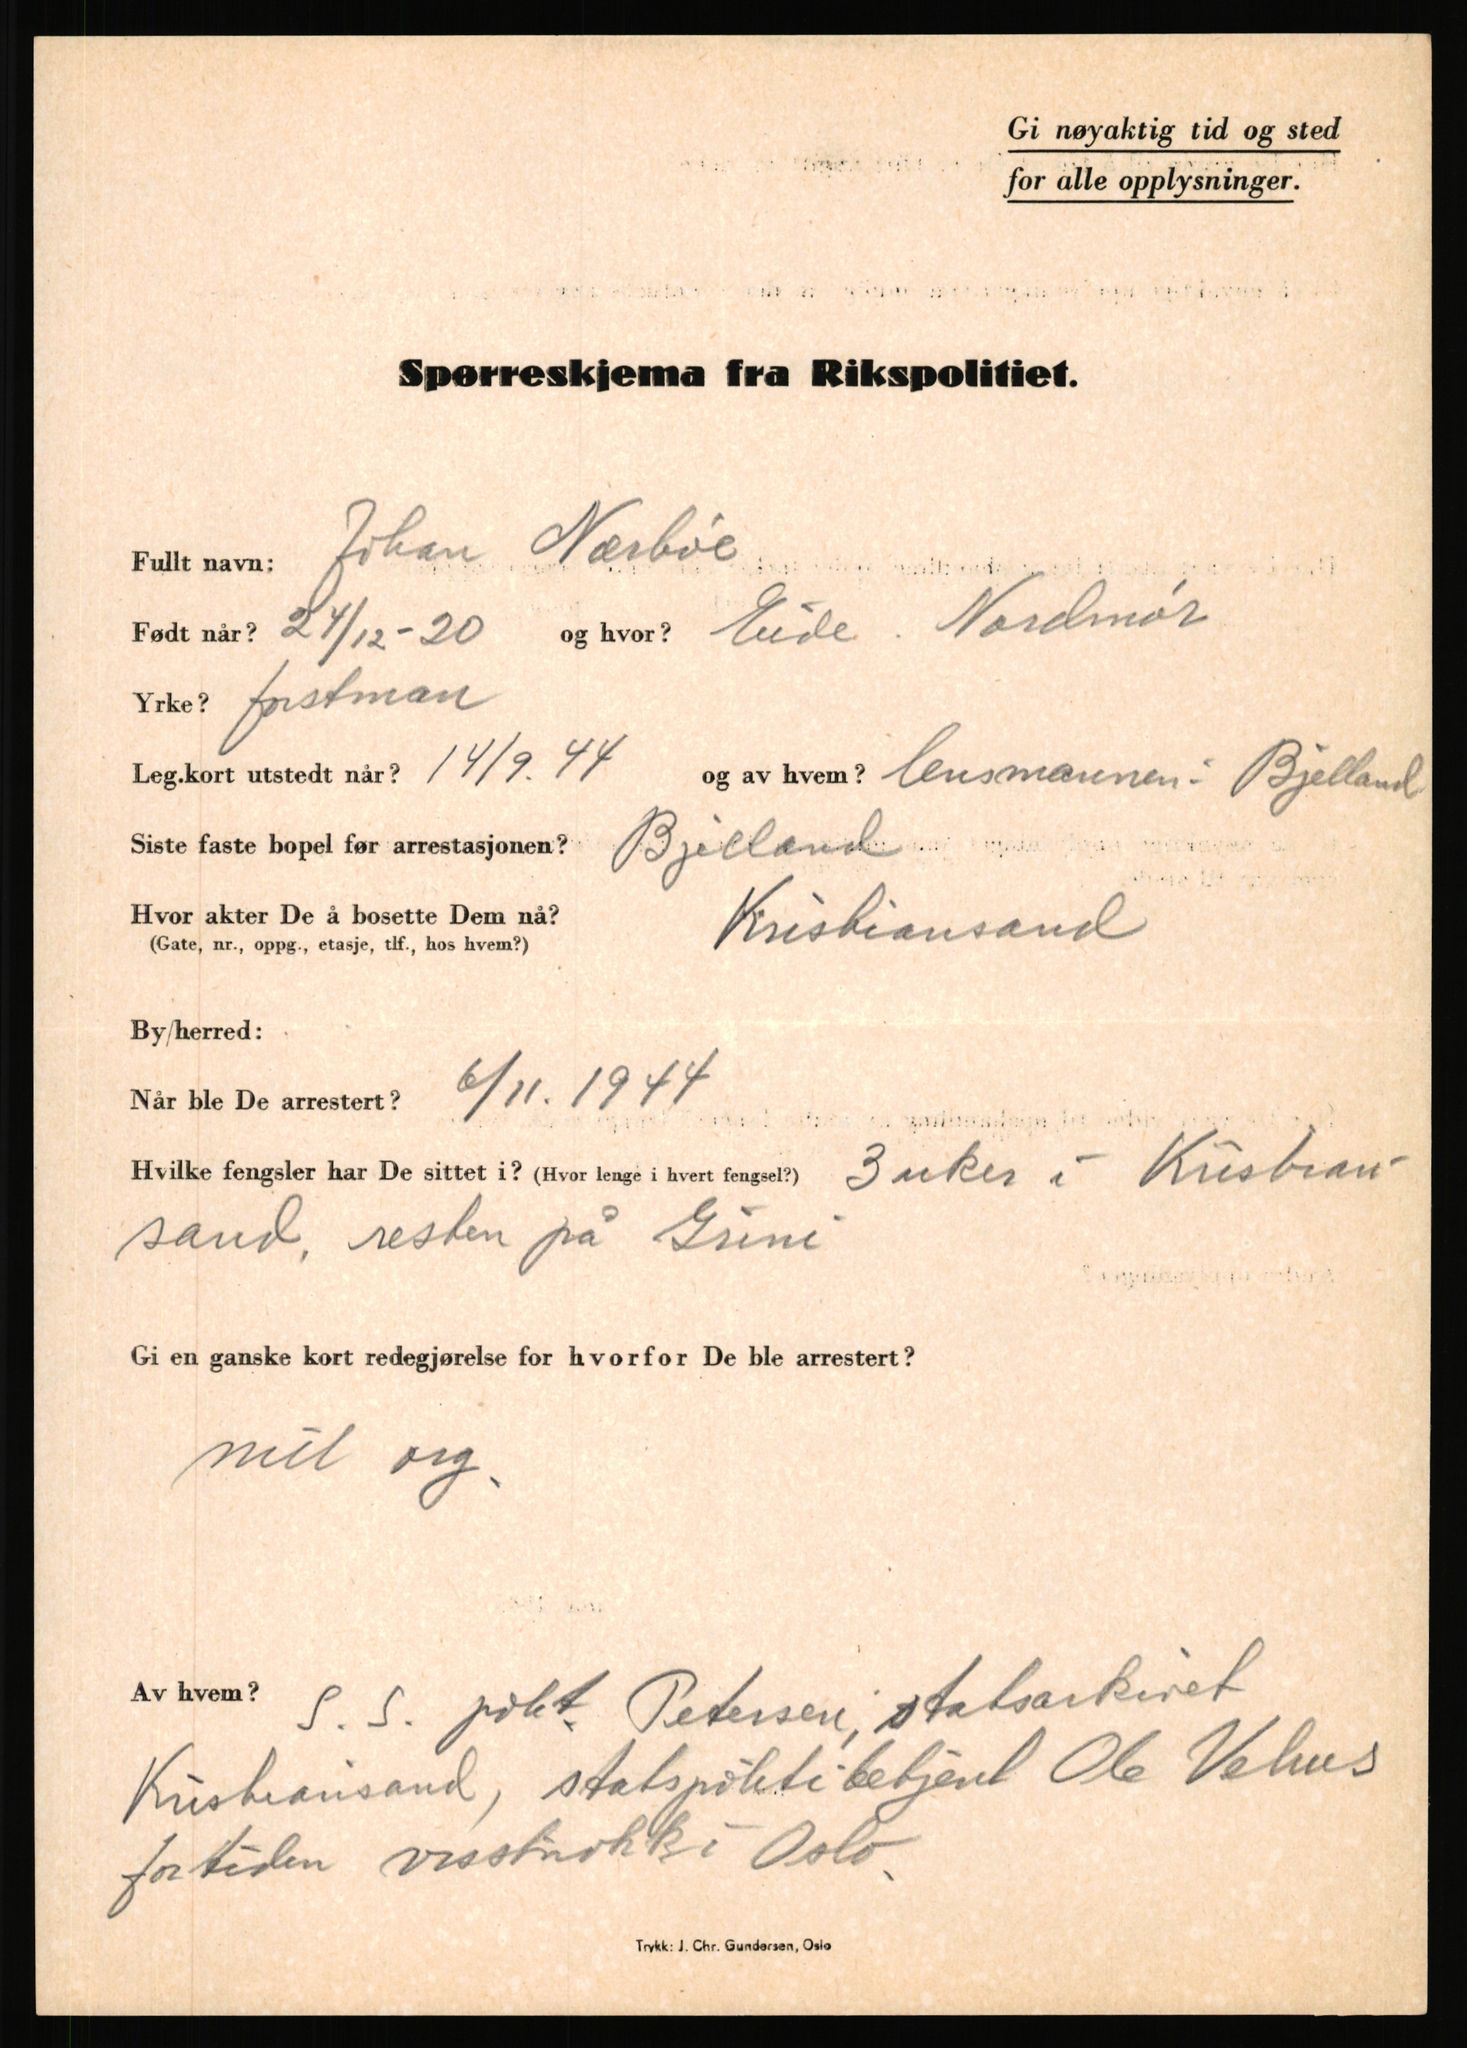 Gi nøyaktig tid og sted
for alle opplysninger.
Spørreskjema fra Rikspolitiet.
Fullt navn: Johan Nærbøe
Født når? 24/12-20 og hvor? Eide. Nordmør
Yrke? forstman
Leg.kort utstedt når? 14/9.44 og av hvem? lensmannen i Bjelland
Siste faste bopel før arrestasjonen? Bjelland
Hvor akter De å bosette Dem nå? Kristiansand
(Gate, nr., oppg., etasje, tlf., hos hvem?)
By/herred:
Når ble De arrestert? 6/11. 1944
Hvilke fengsler har De sittet i? (Hvor lenge i hvert fengsel?) 3 uker i Kristian-
sand, resten på Grini
Gi en ganske kort redegjørelse for hvorfor De ble arrestert?
mil org.
Av hvem? S.S. polit. Petersen, statsarkivet
Kristiansand, statspolitibetjent Ole Vehus
for tiden visstnokk i Oslo.
Trykk: J. Chr. Gundersen, Oslo